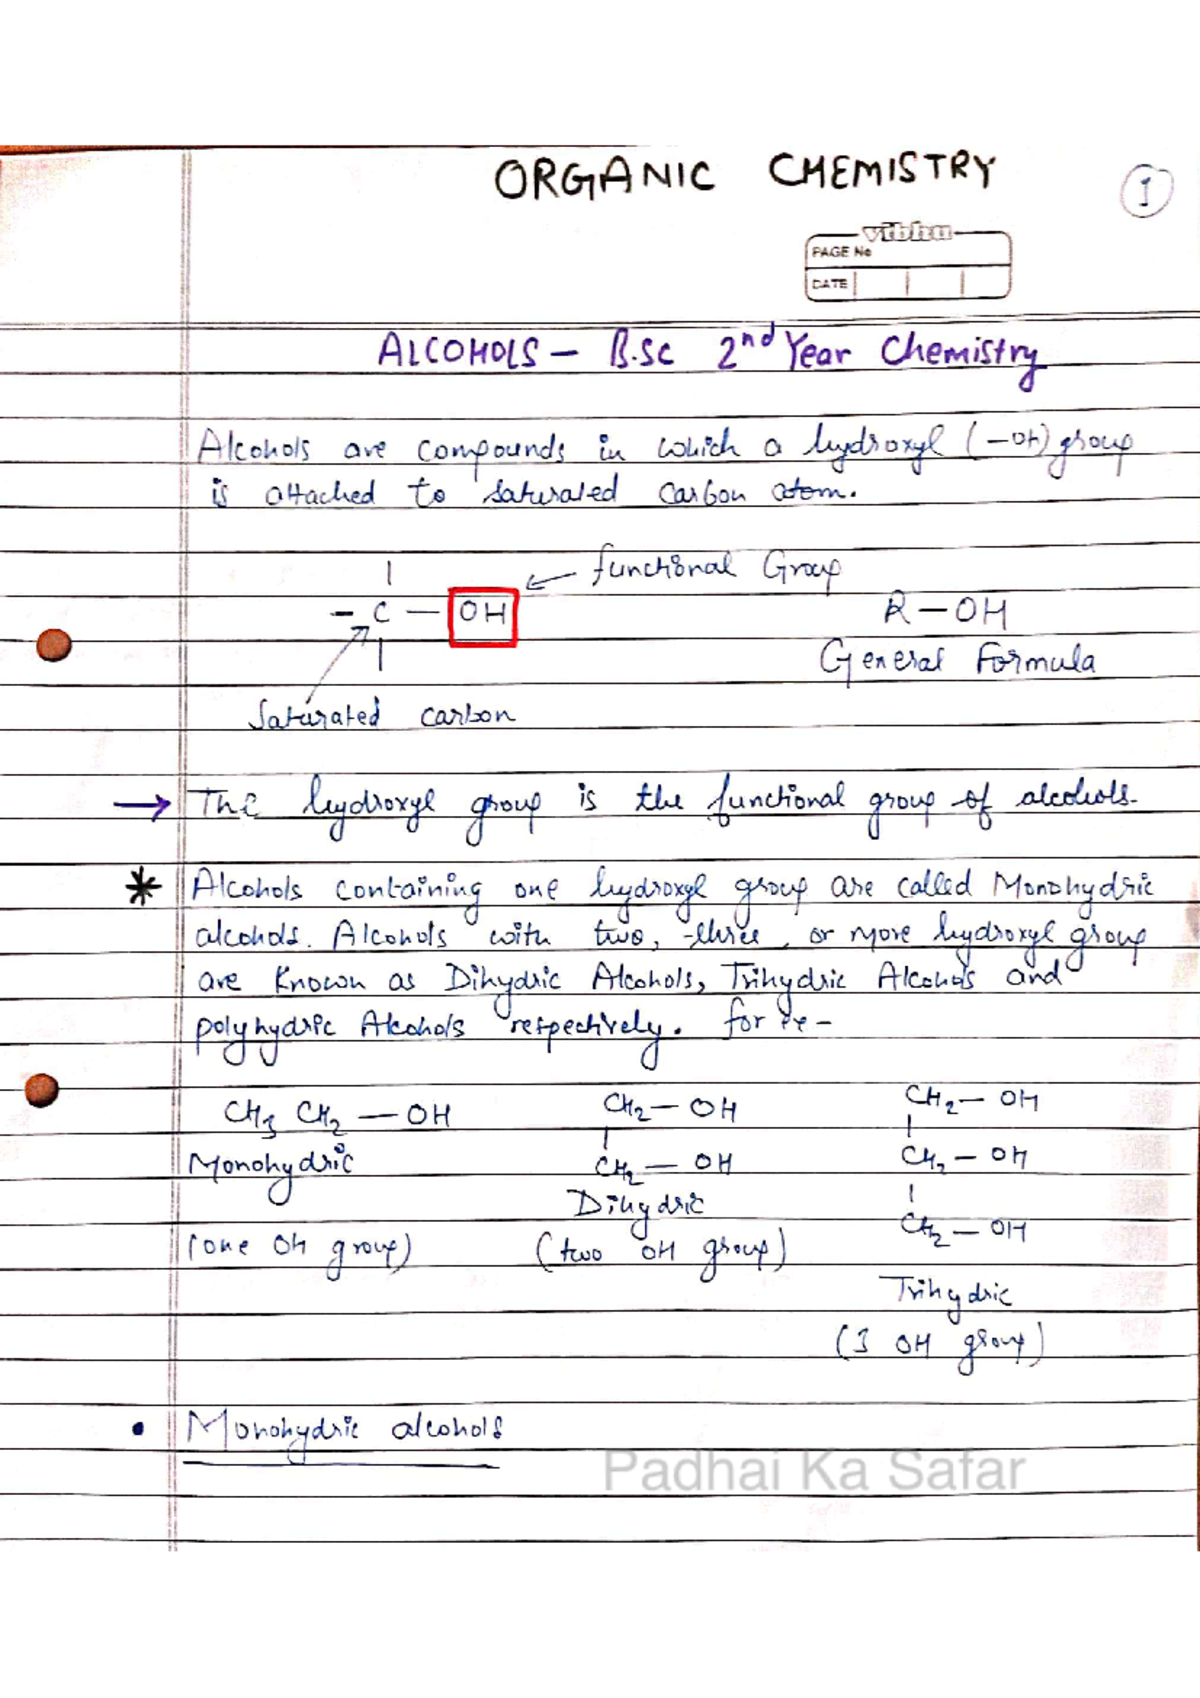 ORGANIC CHEMISTRY
1
vibhu
PAGE No
DATE
ALCOHOLS – B.SC 2nd Year Chemistry
Alcohols are compounds in which a hydroxyl (–OH) group
is attached to saturated carbon atom.
functional Group
– C – OH
R – OH
General Formula
Saturated carbon
→ The hydroxyl group is the functional group of alcohols.
* Alcohols containing one hydroxyl group are called Monohydric
alcohols. Alcohols with two, three, or more hydroxyl group
are Known as Dihydric Alcohols, Trihydric Alcohols and
polyhydric Alcohols respectively. for ex –
CH3 CH2 – OH
Monohydric
(one OH group)
CH2 – OH
CH2 – OH
Dihydric
(two OH group)
CH2 – OH
CH2 – OH
CH2 – OH
Trihydric
(3 OH group)
• Monohydric alcohols
Padhai Ka Safar